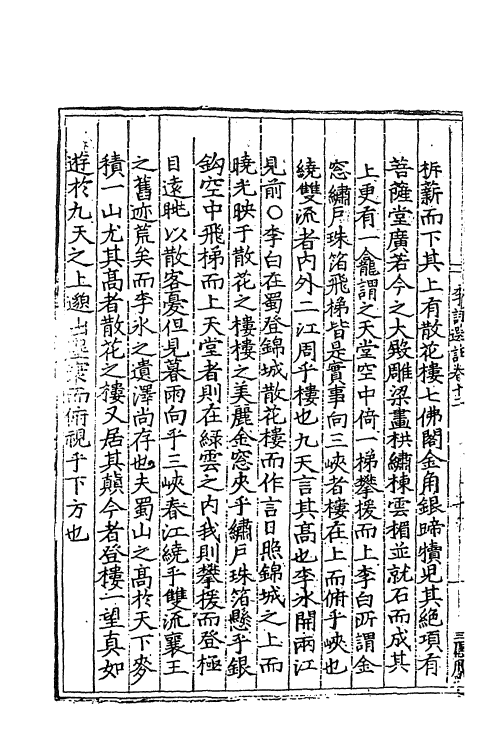 李詩選註卷十二
柝薪而下其上有散花樓七佛閣金角銀蹄犢兒其絕項有
菩薩堂廣若今之大殿雕梁畫栱繡棟雲楣並就石而成其
上更有一龕謂之天堂空中倚一梯攀援而上李白所謂金
窓繡戶珠箔飛梯皆是實事向三峽者樓在上而俯乎峽也
繞雙流者内外二江周乎樓也九天言其高也李氷開兩江
見前〇李白在蜀登錦城散花樓而作言日照錦城之上而
曉光映于散花之樓樓之美麗金窓夾乎繡戶珠箔懸乎銀
鈎空中飛梯而上天堂者則在綠雲之内我則攀援而登極
目遠眺以散客憂但見暮雨向乎三峽春江繞乎雙流襄王
之舊迹荒矣而李氷之遺澤尚存也夫蜀山之高於天下麥
積一山尤其高者散花之樓又居其巔今者登樓一望真如
遊於九天之上而俯視乎下方也